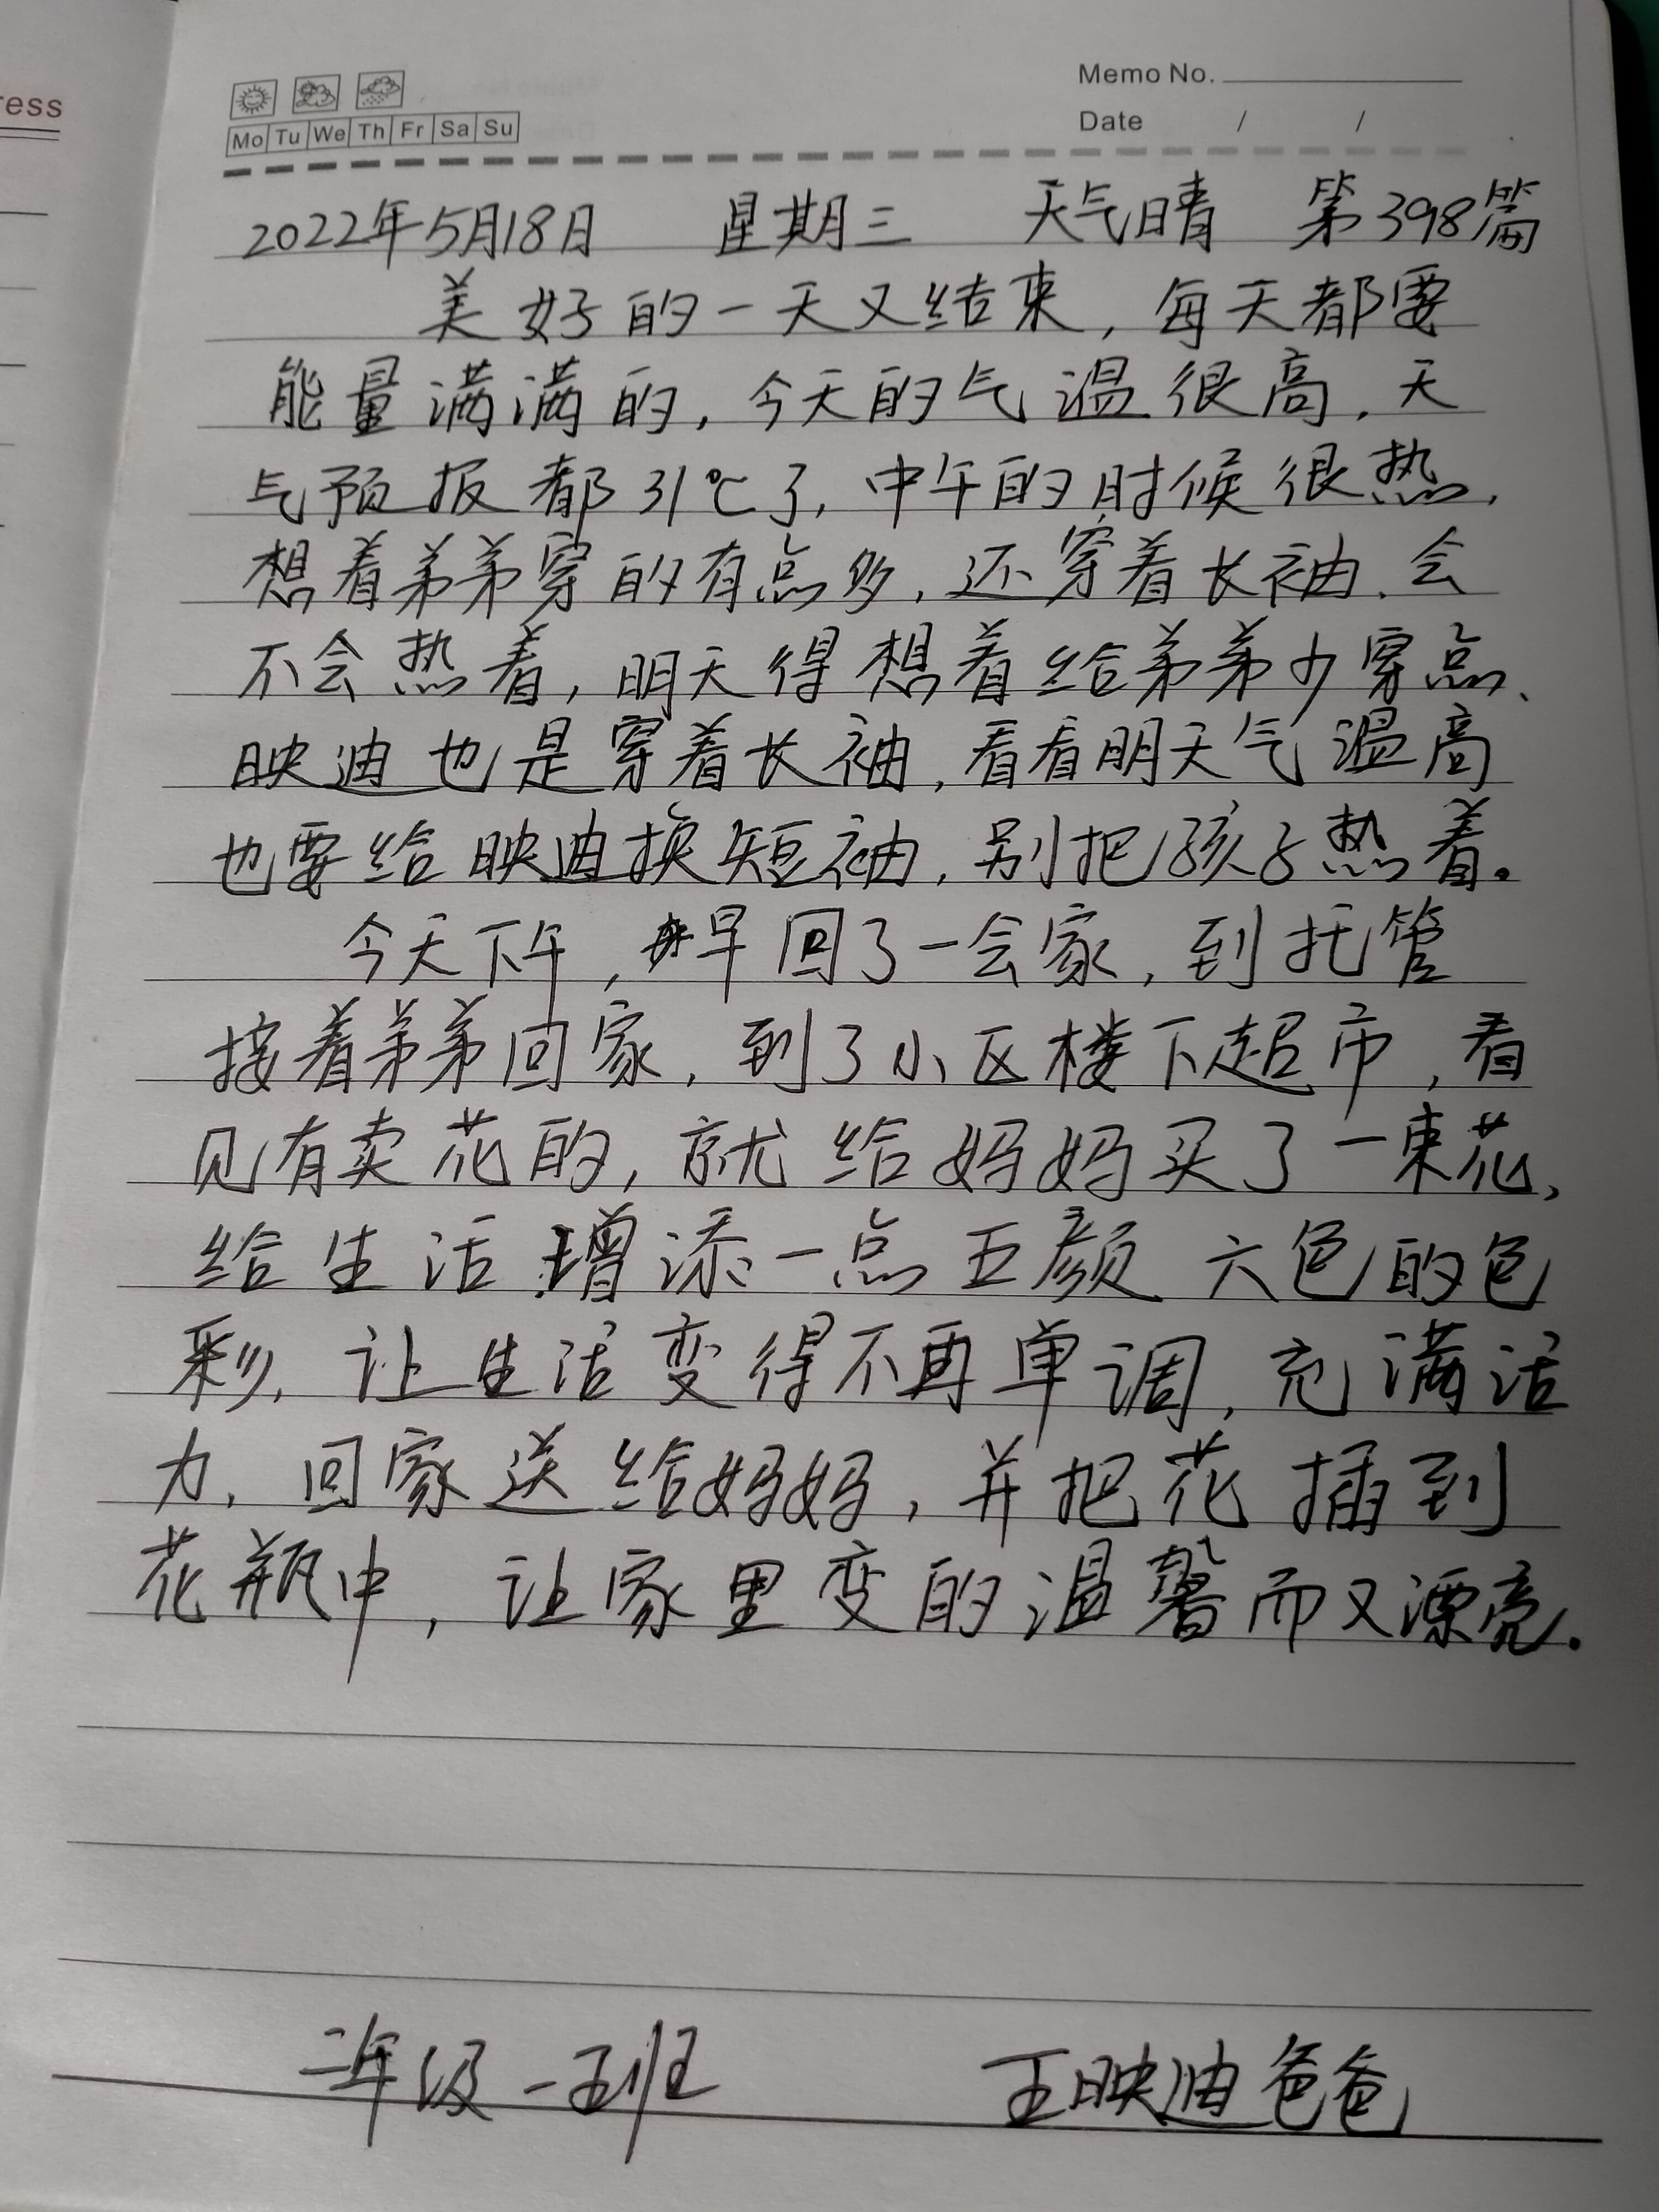 ress
Memo No.
Mo Tu We Th Fr Sa Su
Date / /
2022年5月18日 星期三 天气晴 第398篇
美好的一天又结束,每天都要
能量满满的,今天的气温很高,天
气预报都31℃了,中午的时候很热,
想着弟弟穿的有点多,还穿着长袖,会
不会热着,明天得想着给弟弟少穿点、
映迪也是穿着长袖,看看明天气温高
也要给映迪换短袖,别把孩子热着。
今天下午,早回了一会家,到托管
接着弟弟回家,到了小区楼下超市,看
见有卖花的,就给妈妈买了一束花,
给生活增添一点五颜六色的色
彩,让生活变得不再单调,充满活
力,回家送给妈妈,并把花插到
花瓶中,让家里变的温馨而又漂亮.
二年级一班 王映迪爸爸